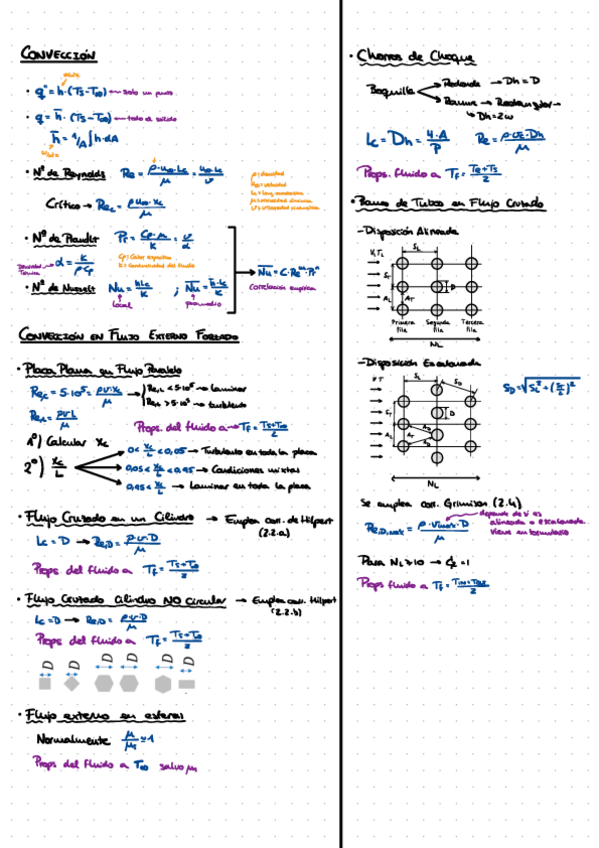 CONVECCIÓN
• q" = h·(Ts-T∞) ← solo un punto
• q = h̄·(Ts-T∞) ← todo el sólido
h̄ = 1/A ∫ h·dA
• Nº de Reynolds Re = ρ·u∞·Lc/μ = u∞·Lc/ν
ρ: densidad
u∞: velocidad
Crítico → Rec = ρu∞·xc/μ
• Nº de Prandtl Pr = Cp·μ/K = ν/α
α = K/ρCp
Cp: Calor específico
K: Conductividad del fluido
• Nº de Nusselt Nu = hLc/K ; N̄u = h̄·Lc/K
local promedio
→ N̄u = C·Re^m·Pr^n
Correlación empírica
CONVECCIÓN EN FLUJO EXTERNO FORZADO
• Placa Plana en Flujo Paralelo
Rexc = 5·10⁵ = ρv·xc/μ → Re,L < 5·10⁵ → laminar
Re,L > 5·10⁵ → turbulento
ReL = ρv·L/μ
Props. del fluido a → TF = Ts+T∞/2
1º) Calcular xc
2º) xc/L
0 < xc/L < 0,05 → Turbulento en toda la placa
0,05 < xc/L < 0,95 → Condiciones mixtas
0,95 < xc/L → Laminar en toda la placa
• Flujo Cruzado en un Cilindro → Emplea corr. de Hilpert
(2.2.a)
Lc = D → ReD = ρ·v·D/μ
Props del fluido a TF = Ts+T∞/2
• Flujo Cruzado Cilindro NO Circular → Emplea corr. Hilpert
(2.2.b)
Lc = D → ReD = ρ·v·D/μ
Props del fluido a TF = Ts+T∞/2
D D D D D
• Flujo externo en esferas
Normalmente μ/μs ≈ 1
Props del fluido a T∞ salvo μs
• Chorros de Choque
Boquilla → Redonda → Dh = D
→ Ranura → Rectangular →
→ Dh = 2w
Lc = Dh = 4·A/P Re = ρ·ve·Dh/μ
Props. fluido a TF = Te+Ts/2
• Bancos de Tubos en Flujo Cruzado
– Disposición Alineada
V, Ti SL
ST D
AL AT
Primera fila Segunda fila Tercera fila
NL
– Disposición Escalonada
V T SL SD
ST D
AL
NL
SD = √SL² + (ST/2)²
Se emplea corr. Grimison (2.4)
ReD,max = ρ·Vmax·D/μ
depende de si es
alineada o escalonada
viene en formulario
Para NL ≥ 10 → C2 = 1
Props fluido a TF =